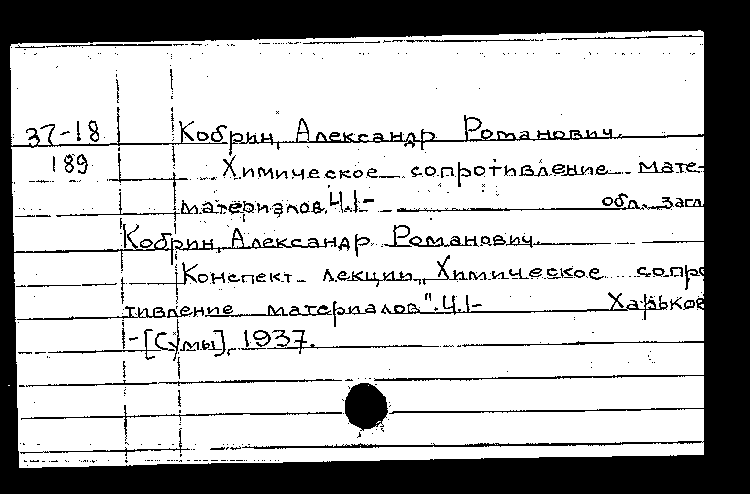 37-18 Кобрин, Александр Романович.
189 Химическое сопротивление мате-
материалов. Ч.1- обл. загл.
Кобрин, Александр Романович.
Конспект лекции „Химическое сопро
тивление материалов". Ч.1- Харьков
-[Сумы], 1937.